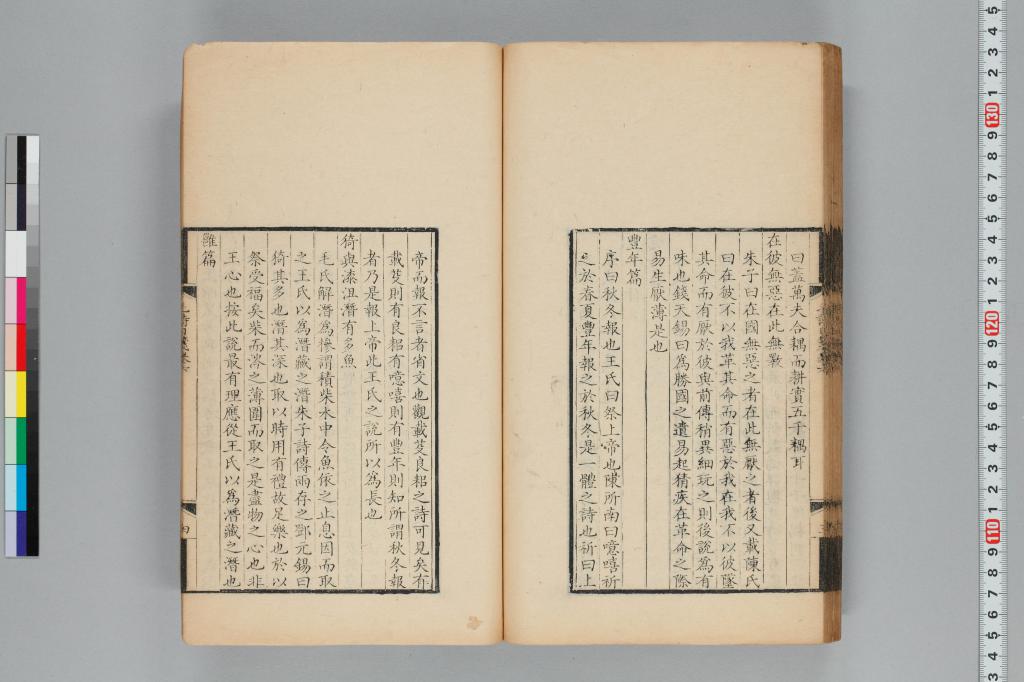 曰蓋萬夫合耦而耕實五千耦耳
在彼無惡在此無斁
朱子曰在國無惡之者在此無厭之者後又載陳氏
曰在彼不以我革其命而有惡於我在我不以彼墜
其命而有厭於彼與前傳稍異細玩之則後說為有
味也錢天錫曰為勝國之遺易起猜疾在革命之際
易生厭薄是也
豐年篇
序曰秋冬報也王氏曰祭上帝也陳所南曰噫嘻祈
之於春夏豐年報之於秋冬是一體之詩也祈曰上
帝而報不言者省文也觀載芟良耜之詩可見矣有
載芟則有良耜有噫嘻則有豐年則知所謂秋冬報
者乃是報上帝此王氏之說所以為長也
猗與漆沮潛有多魚
毛氏解潛為槮謂積柴水中令魚依之止息因而取
之王氏以為潛藏之潛朱子詩傳兩存之鄧元錫曰
猗其多也潛其深也取以時用有禮故足樂也於以
祭受福矣柴而涔之薄圍而取之是盡物之心也非
王心也按此說最有理應從王氏以為潛藏之潛也
雝篇
四
5
1
2
3
4
5
6
7
8
9
130
1
2
3
4
5
6
7
8
9
120
1
2
3
4
5
6
7
8
9
110
1
2
3
4
5
6
7
8
9
5
4
3